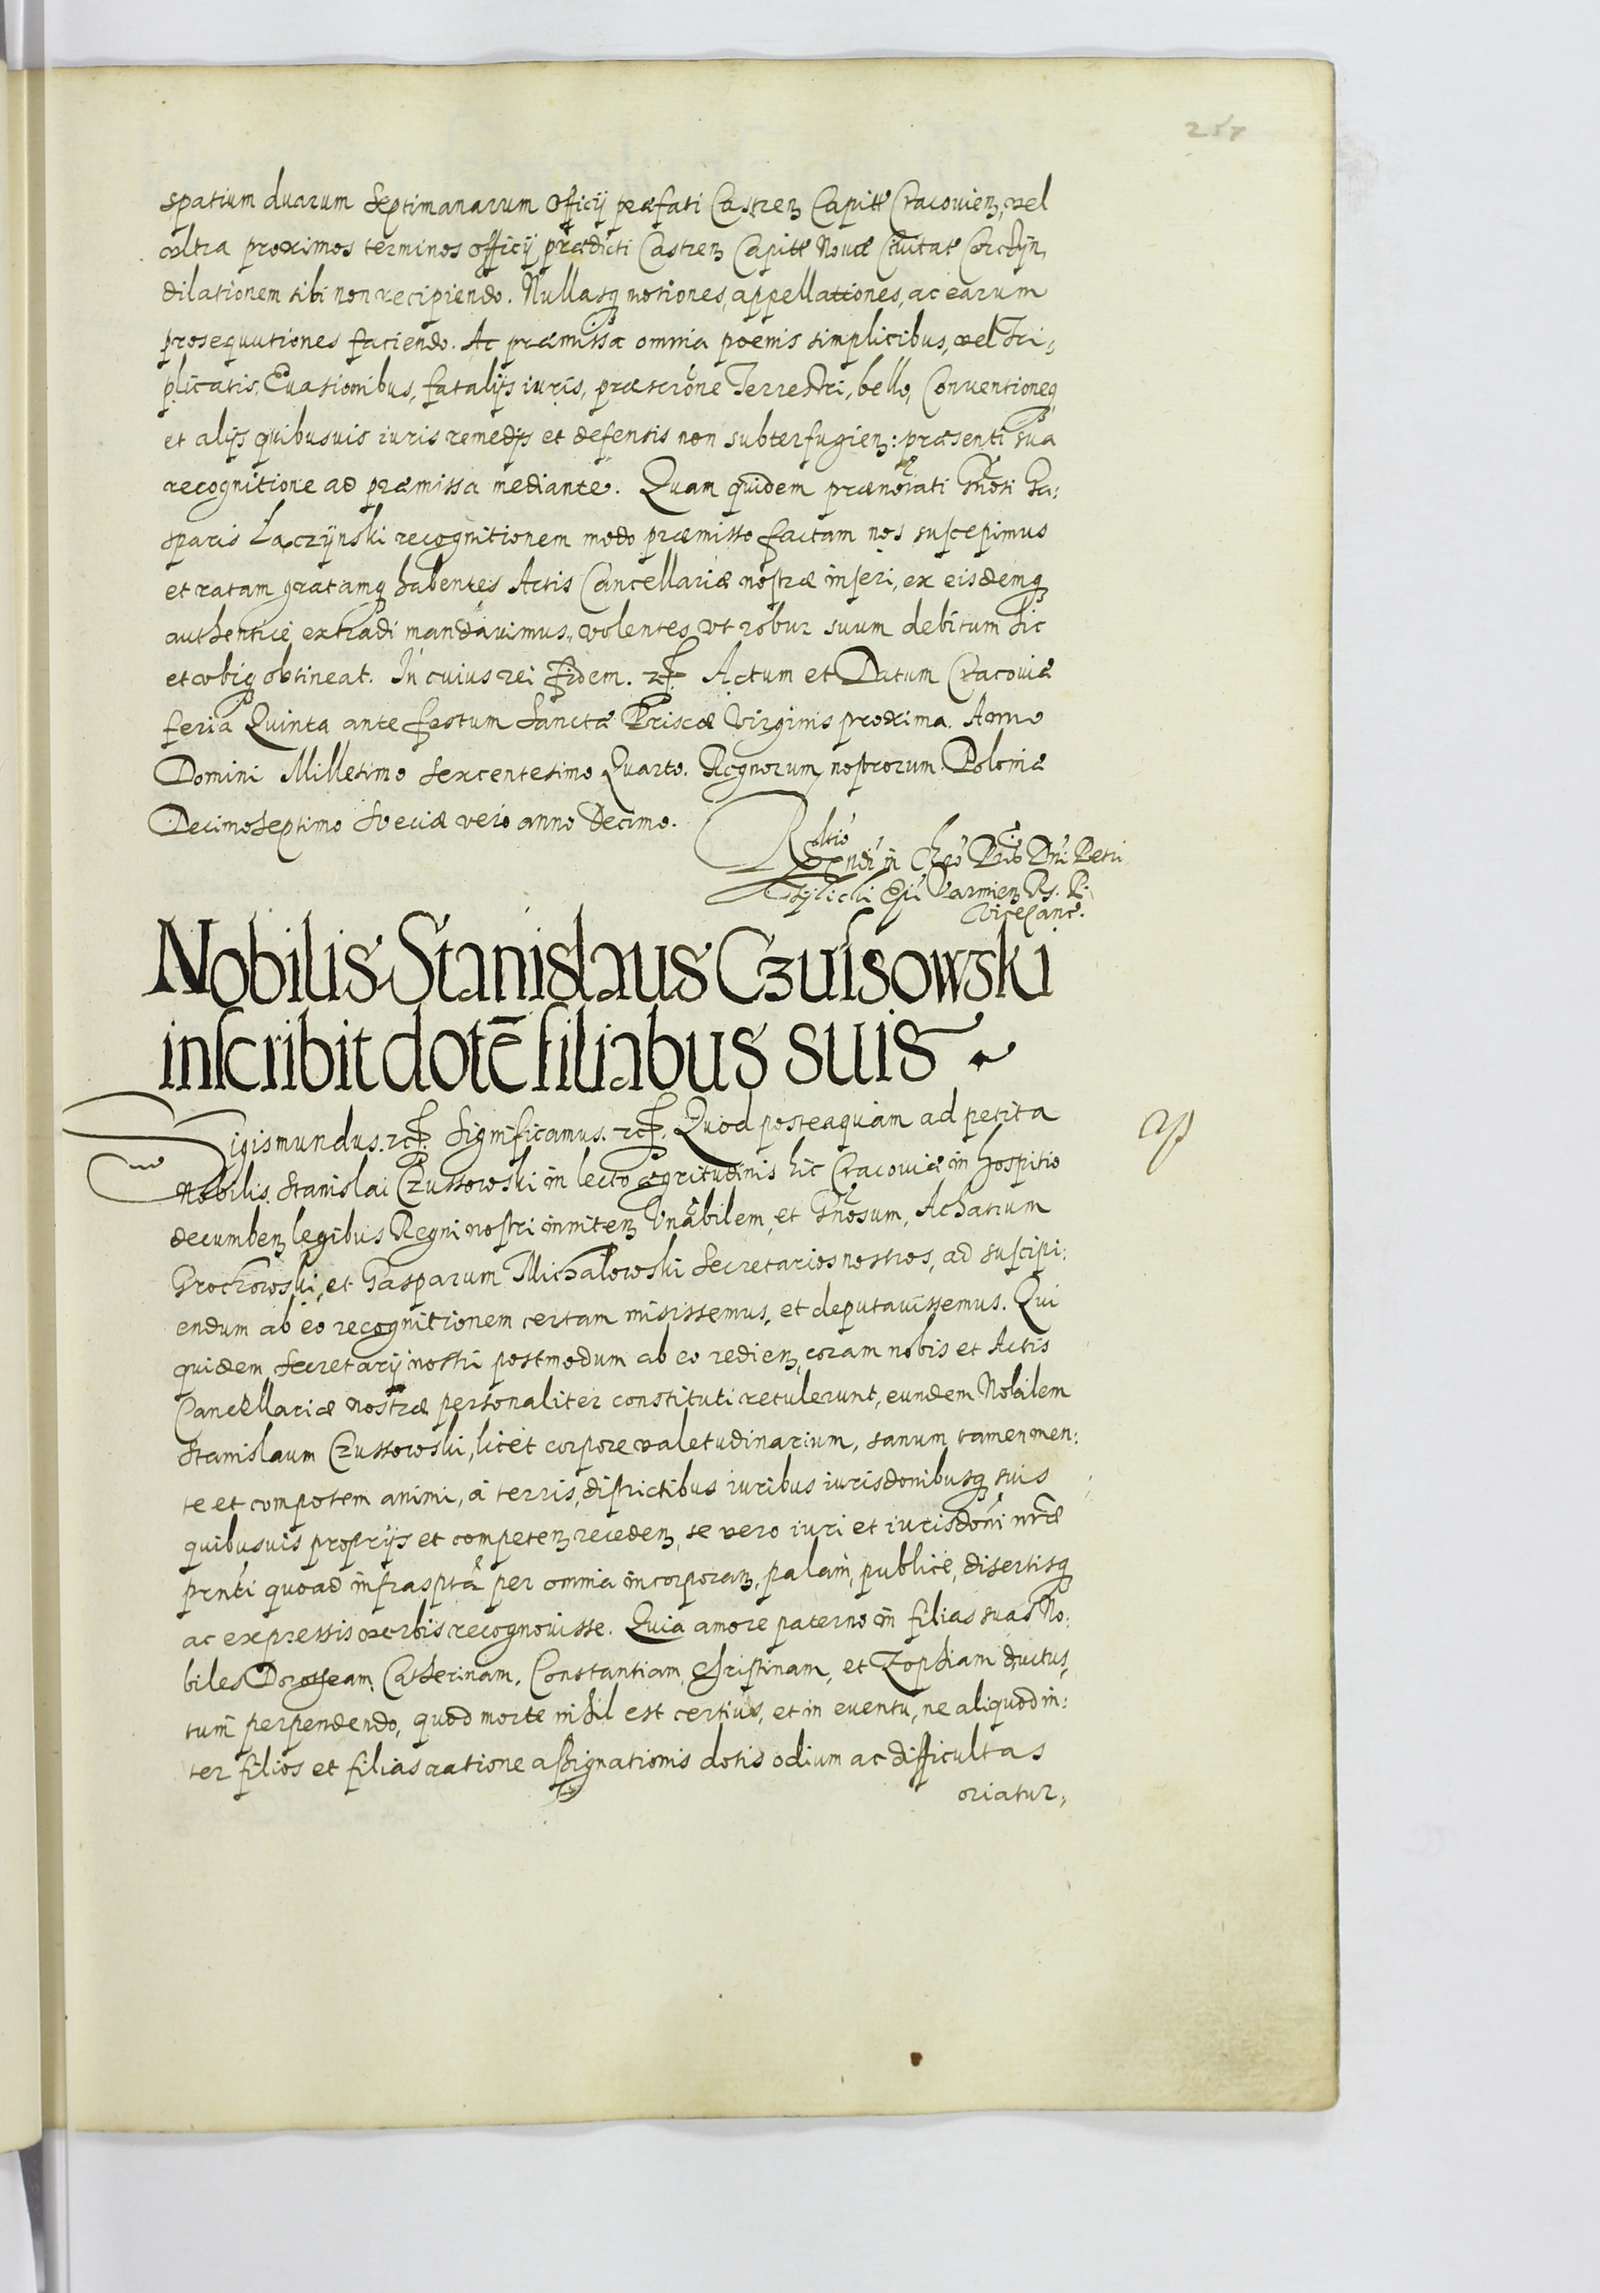 257
spatium duarum Septimanarum Officij præfati Castren Capitt Cracovien, vel
ultra proximos terminos officij prædicti Castren Capitt Novæ Civitat Corczÿn,
dilationem sibi non recipiendo. Nullasq motiones, appellationes, ac earum
prosequutiones faciendo. Ac præmissa omnia poenis simplicibus, vel Tri-
plicatis, Evasionibus, fatalijs iuris, præscrōne Terrestri, bello, Conventioneq
et alijs quibusvis iuris remedijs et defensis non subterfugien: præsenti sua
recognitione ad præmissa mediante. Quam quidem prænorati Gnosi Ga-
sparis Łączÿnski recognitionem modo præmisso factam nos suscepimus
et ratam gratamq habentes Actis Cancellariæ nostræ inseri, ex eisdemq
authenticè extradi mandavimus, volentes, ut robur suum debitum hic
et ubiq obtineat. In cuius rei fidem. etc. Actum et Datum Cracoviæ
feria Quinta ante festum Sanctæ Priscæ Virginis proxima. Anno
Domini Millesimo Sexcentesimo Quarto. Regnorum nostrorum Poloniæ
Decimoseptimo Sveciæ vero anno Decimo.
Rltio Rndi in Chro Pris Dni Petri
Tÿlicki Epi Varmien Rs. P.
Vicecanc.
Nobilis Stanislaus Czussowski
inscribit dotē filiabus suis
Sigismundus. etc. Significamus. etc. Quod posteaquam ad petita
Nobilis Stanislai Czussowski in lecto ægritudinis hic Cracoviæ in hospitio
decumben, legibus Regni nostri inniten, Vnābilem, et Gnosum, Achatium
Grochowski, et Gasparum Michalowski Secretarios nostros, ad suscipi-
endum ab eo recognitionem certam misissemus, et deputavissemus. Qui
quidem Secretarij nostri postmodum ab eo redien, coram nobis et Actis
Cancellariæ nostræ personaliter constituti retulerunt, eundem Nobilem
Stanislaum Czussowski, licèt corpore valetudinarium, sanum tamen men-
te et compotem animi, à terris, districtibus iuribus iurisdonibusq suis
quibusvis proprijs et competen receden, se vero iuri et iurisdoni nræ
prnti quoad infrasptā per omnia incorporan, palam, publicè, disertisq
ac expressis verbis recognovisse. Quia amore paterno in filias suas No-
biles Dorotheam, Catherinam, Constantiam, Christinam, et Zophiam ductus,
tum perpendendo, quod morte nihil est certius, et in eventu, ne aliquod in-
ter filios et filias ratione assignationis dotis odium ac difficultas
oriatur,